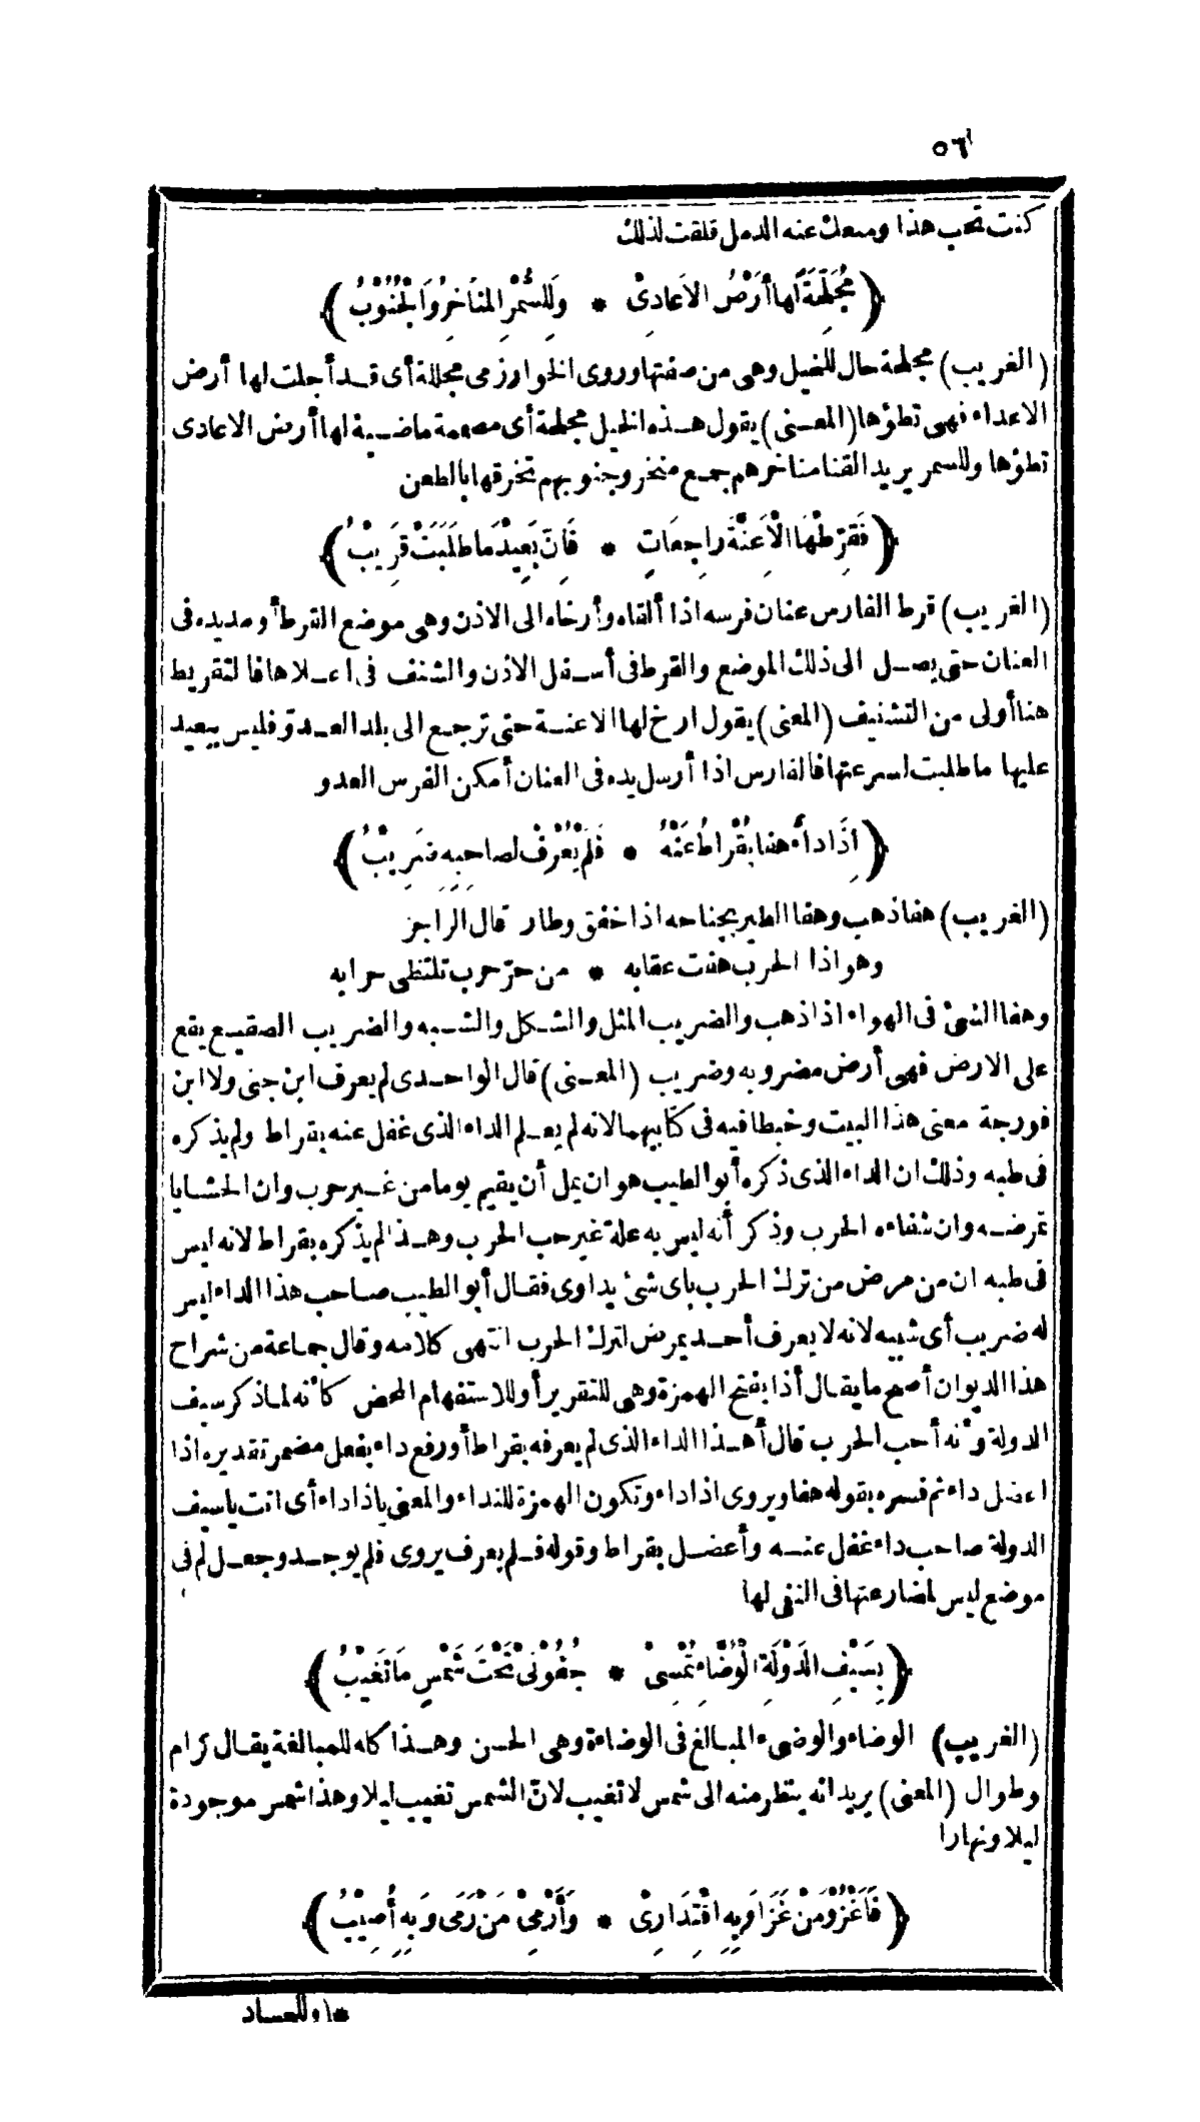 ٥٦
كنت تحب هذا ومنعك عنه الدمل قلقت لذلك
(مُجَلِّحَةً لَها أَرْضُ الاَعادِىْ * وَلِلسُّمْرِ المَناخِرُ وَالْجُنُوْبُ)
(الغريب) مجلحة حال للخيل وهى من صفتها وروى الخوارزمى مجللة أى قد أجلت لها أرض
الاعداء فهى تطؤها (المعنى) يقول هذه الخيل مجلحة أى مصممة ماضية لها أرض الاعادى
تطؤها وللسمر يريد القنا مناخرهم جمع منخر وجنوبهم تخرقها بالطعن
(فَقَرِّطْهَا الْاَعِنَّةَ راجِعَاتٍ * فَاِنَّ بَعِيْدَ مَا طَلَبَتْ قَرِيْبُ)
(الغريب) قرط الفارس عنان فرسه اذا ألقاه وأرخاه الى الاذن وهى موضع القرط أو مد يده فى
العنان حتى يصل الى ذلك الموضع والقرط فى أسفل الاذن والشنف فى اعلاها فالتقريط
هنا أولى من التشنيف (المعنى) يقول ارخ لها الاعنة حتى ترجع الى بلد العدوّ فليس ببعيد
عليها ما طلبت لسرعتها فالفارس اذا أرسل يده فى العنان أمكن الفرس العدو
(اِذَا داء هفا بُقْراطُ عَنْهُ * فَلَمْ يُعْرَفْ لصاحِبِهِ ضَرِيْبُ)
(الغريب) هفا ذهب وهفا الطير بجناحه اذا خفق وطار قال الراجز
وهو اذا الحرب هفت عقابه * من حرّ حرب تلتظى حرابه
وهفا الشئ فى الهواء اذا ذهب والضريب المثل والشكل والشبه والضريب الصقيع يقع
على الارض فهى أرض مضروبه وضريب (المعنى) قال الواحدى لم يعرف ابن جنى ولا ابن
فورجة معنى هذا البيت وخبطا فيه فى كتابيهما لانه لم يعلم الداء الذى غفل عنه بقراط ولم يذكره
فى طبه وذلك ان الداء الذى ذكره أبو الطيب هو ان يمل أن يقيم يوما من غير حرب وان الحشايا
تمرضه وان شفاءه الحرب وذكر أنه ليس به علة غير حب الحرب وهذا لم يذكره بقراط لانه ليس
فى طبه ان من مرض من ترك الحرب باى شئ يداوى فقال أبو الطيب صاحب هذا الداء ليس
له ضريب أى شبيه لانه لا يعرف أحد يمرض لترك الحرب انتهى كلامه وقال جماعة من شراح
هذا الديوان أصح ما يقال أذا بفتح الهمزة وهى للتقرير أو للاستفهام المحض كأنه لما ذكر سيف
الدولة وأنه أحب الحرب قال أهذا الداء الذى لم يعرفه بقراط أو رفع داء بفعل مضمر تقديره اذا
اعضل داء ثم فسره بقوله هفا ويروى اذا داء وتكون الهمزة للنداء والمعنى ياذا داء أى انت ياسيف
الدولة صاحب داء غفل عنه وأعضل بقراط وقوله فلم يعرف يروى فلم يوجد وجعل لم فى
موضع ليس لمضارعتها فى النفى لها
(بِسَيْفِ الدَوْلَةِ الْوُضَّاءِ تُمْسِىْ * جُفُوْنِىْ تَحْتَ شَمْسٍ مَا تَغِيْبُ)
(الغريب) الوضاء والوضىء المبالغ فى الوضاءة وهى الحسن وهذا كله للمبالغة يقال كرام
وطوال (المعنى) يريد انه ينظر منه الى شمس لا تغيب لانّ الشمس تغيب ليلا وهذا شمس موجودة
ليلا ونهارا
(فَاَغْزُوْ مَنْ غَزَا وَبِهِ اقْتِدَارِىْ * وَأَرْمِىْ مَنْ رَمَى وَبِهِ أُصِيْبُ)
* وللحساد